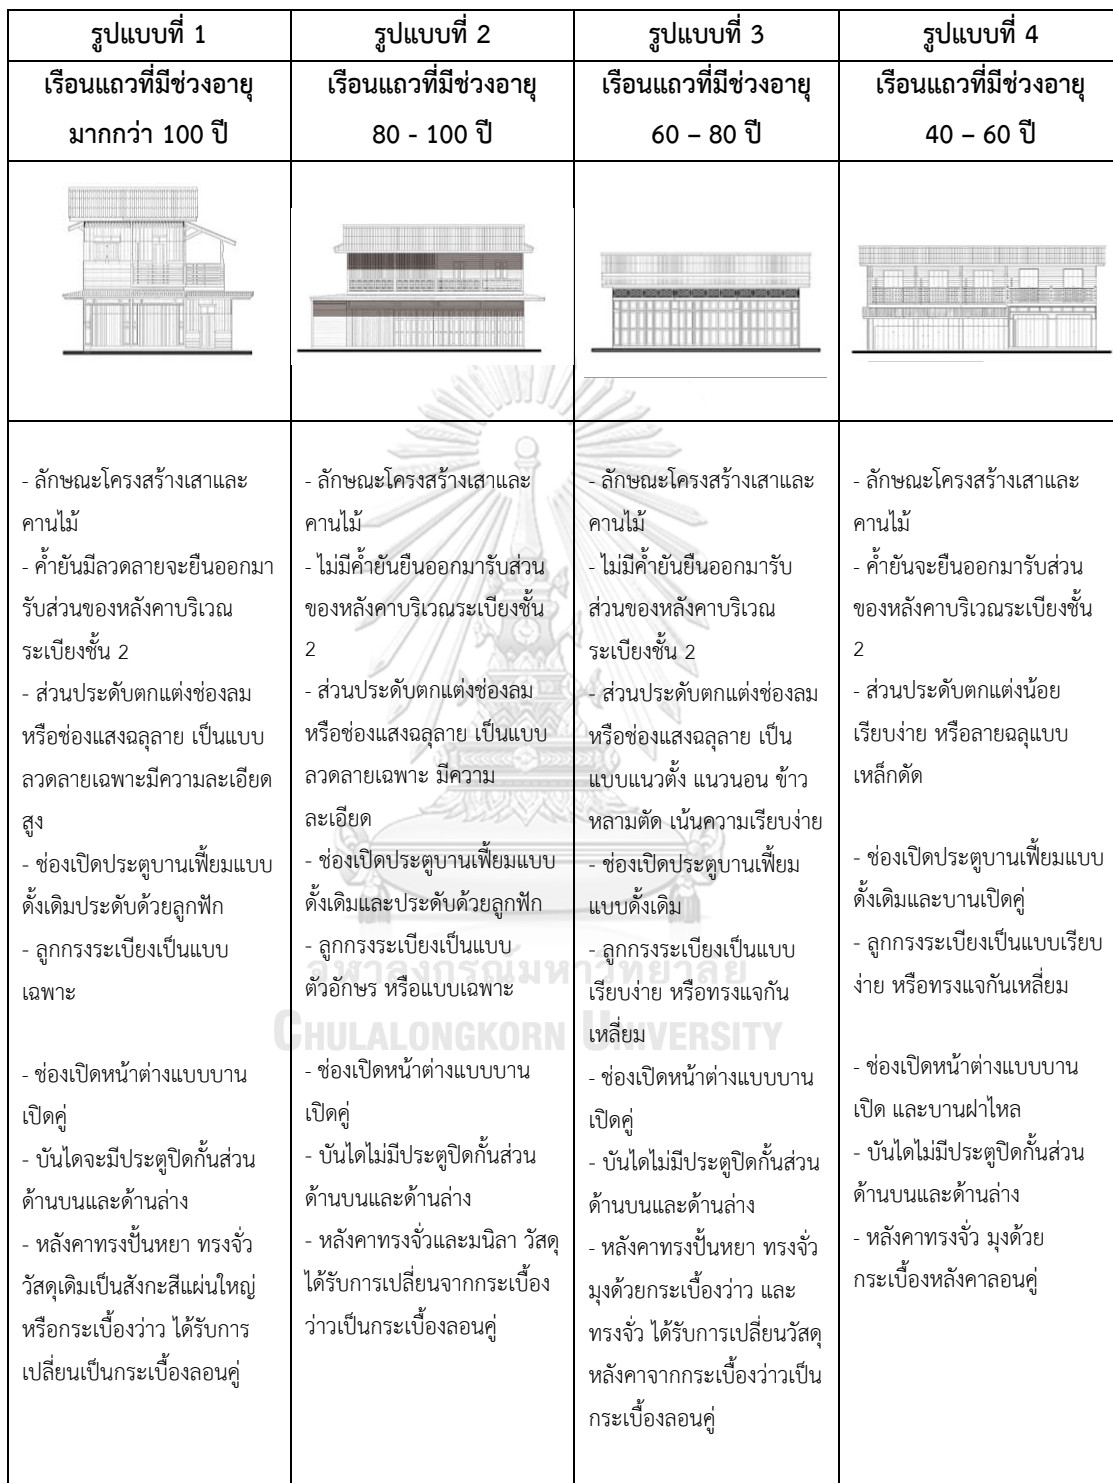 รูปแบบที่ 1
รูปแบบที่ 2
รูปแบบที่ 3
รูปแบบที่ 4
เรือนแถวที่มีช่วงอายุ
มากกว่า 100 ปี
เรือนแถวที่มีช่วงอายุ
80 - 100 ปี
เรือนแถวที่มีช่วงอายุ
60 – 80 ปี
เรือนแถวที่มีช่วงอายุ
40 – 60 ปี
- ลักษณะโครงสร้างเสาและ
คานไม้
- ค้ำยันมีลวดลายจะยืนออกมา
รับส่วนของหลังคาบริเวณ
ระเบียงชั้น 2
- ส่วนประดับตกแต่งช่องลม
หรือช่องแสงฉลุลาย เป็นแบบ
ลวดลายเฉพาะมีความละเอียด
สูง
- ช่องเปิดประตูบานเฟี้ยมแบบ
ดั้งเดิมประดับด้วยลูกฟัก
- ลูกกรงระเบียงเป็นแบบ
เฉพาะ
- ช่องเปิดหน้าต่างแบบบาน
เปิดคู่
- บันไดจะมีประตูปิดกั้นส่วน
ด้านบนและด้านล่าง
- หลังคาทรงปั้นหยา ทรงจั่ว
วัสดุเดิมเป็นสังกะสีแผ่นใหญ่
หรือกระเบื้องว่าว ได้รับการ
เปลี่ยนเป็นกระเบื้องลอนคู่
- ลักษณะโครงสร้างเสาและ
คานไม้
- ไม่มีค้ำยันยืนออกมารับส่วน
ของหลังคาบริเวณระเบียงชั้น
2
- ส่วนประดับตกแต่งช่องลม
หรือช่องแสงฉลุลาย เป็นแบบ
ลวดลายเฉพาะ มีความ
ละเอียด
- ช่องเปิดประตูบานเฟี้ยมแบบ
ดั้งเดิมและประดับด้วยลูกฟัก
- ลูกกรงระเบียงเป็นแบบ
ตัวอักษร หรือแบบเฉพาะ
- ช่องเปิดหน้าต่างแบบบาน
เปิดคู่
- บันไดไม่มีประตูปิดกั้นส่วน
ด้านบนและด้านล่าง
- หลังคาทรงจั่วและมนิลา วัสดุ
ได้รับการเปลี่ยนจากกระเบื้อง
ว่าวเป็นกระเบื้องลอนคู่
- ลักษณะโครงสร้างเสาและ
คานไม้
- ไม่มีค้ำยันยืนออกมารับ
ส่วนของหลังคาบริเวณ
ระเบียงชั้น 2
- ส่วนประดับตกแต่งช่องลม
หรือช่องแสงฉลุลาย เป็น
แบบแนวตั้ง แนวนอน ข้าว
หลามตัด เน้นความเรียบง่าย
- ช่องเปิดประตูบานเฟี้ยม
แบบดั้งเดิม
- ลูกกรงระเบียงเป็นแบบ
เรียบง่าย หรือทรงแจกัน
เหลี่ยม
- ช่องเปิดหน้าต่างแบบบาน
เปิดคู่
- บันไดไม่มีประตูปิดกั้นส่วน
ด้านบนและด้านล่าง
- หลังคาทรงปั้นหยา ทรงจั่ว
มุงด้วยกระเบื้องว่าว และ
ทรงจั่ว ได้รับการเปลี่ยนวัสดุ
หลังคาจากกระเบื้องว่าวเป็น
กระเบื้องลอนคู่
- ลักษณะโครงสร้างเสาและ
คานไม้
- ค้ำยันจะยืนออกมารับส่วน
ของหลังคาบริเวณระเบียงชั้น
2
- ส่วนประดับตกแต่งน้อย
เรียบง่าย หรือลายฉลุแบบ
เหล็กดัด
- ช่องเปิดประตูบานเฟี้ยมแบบ
ดั้งเดิมและบานเปิดคู่
- ลูกกรงระเบียงเป็นแบบเรียบ
ง่าย หรือทรงแจกันเหลี่ยม
- ช่องเปิดหน้าต่างแบบบาน
เปิด และบานฝาไหล
- บันไดไม่มีประตูปิดกั้นส่วน
ด้านบนและด้านล่าง
- หลังคาทรงจั่ว มุงด้วย
กระเบื้องหลังคาลอนคู่
จุฬาลงกรณ์มหาวิทยาลัย
CHULALONGKORN UNIVERSITY